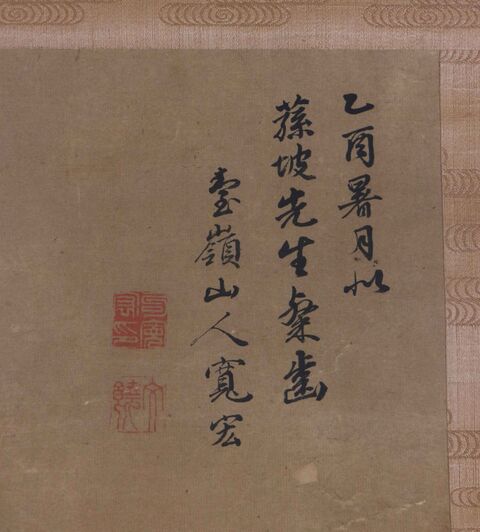 乙酉暑月似
蓀坡先生粲齒
臺嶺山人寬宏